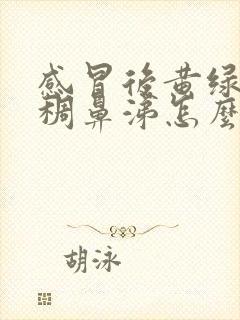 感冒後黄绿
稠鼻涕怎麼
胡泳